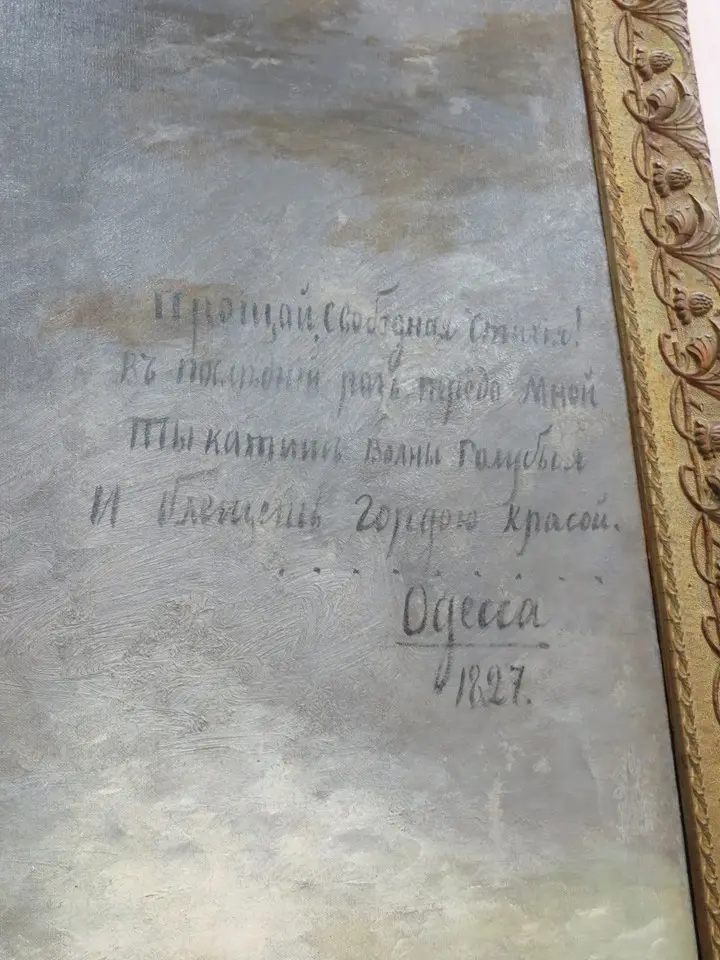 Прощай, Свободная Стихія!
Въ послѣдній разъ передо Мной
Ты катишь Волны Голубыя
И блещешь Гордою Красой.
. . . . . . . . .
Одесса
1827.